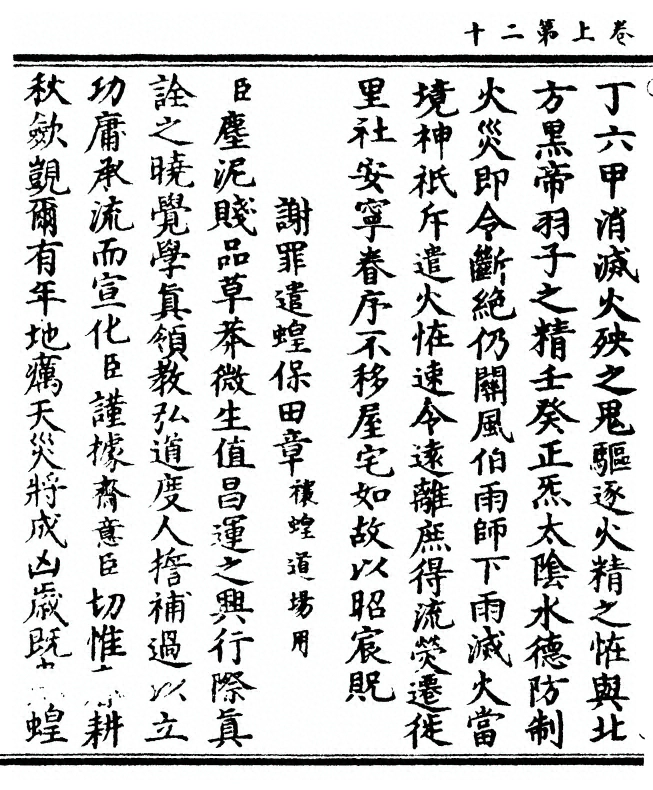 卷上第二十
丁六甲消滅火殃之鬼驅逐火精之恠與北
方黑帝羽子之精壬癸正炁太陰水德防制
火災即令斷絶仍關風伯雨師下雨滅火當
境神祇斥遣火恠速令遠離庶得流熒遷徙
里社安寧眷序不移屋宅如故以昭宸貺
謝罪遣蝗保田章禳蝗道場用
臣塵泥賤品草莽微生值昌運之興行際眞
詮之曉覺學眞領教弘道度人揩補過以立
功庸承流而宣化臣謹據齋意臣切惟耕
秋斂覬爾有年地癘天災將成凶歳既蝗